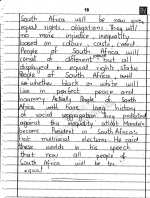 18
South Africa will be now give
equal rights, obligations. They will
no more injustice, inequality
based on colour, caste, creed.
People of South Africa will
consist of different but all
displayed in equal rights status
People of South Africa, will
whether black or white will
live in perfect peace and
harmony. Actually People of South
Africa with have long history
of social segregation. They protested
against this inequality. Mandela
become President in South African
first multiracial elections. He said
these worlds in his speech
that now all people of
South Africa will be
equal.